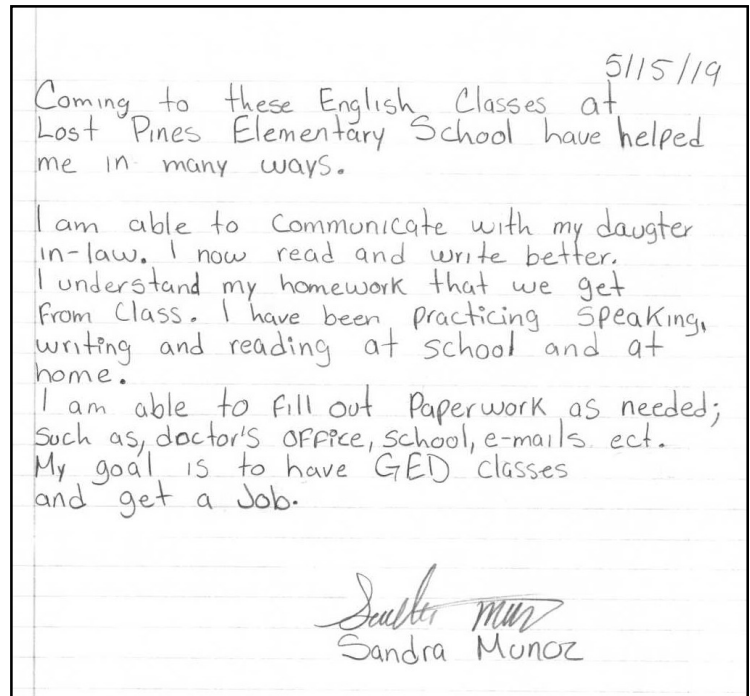 5/15/19
Coming to these English Classes at
Lost Pines Elementary School have helped
me in many ways.
I am able to communicate with my daugter
in-law. I now read and write better.
I understand my homework that we get
from Class. I have been practicing speaking,
writing and reading at school and at
home.
I am able to fill out Paperwork as needed;
such as, doctor's office, school, e-mails ect.
My goal is to have GED classes
and get a Job.
Sandra Munoz